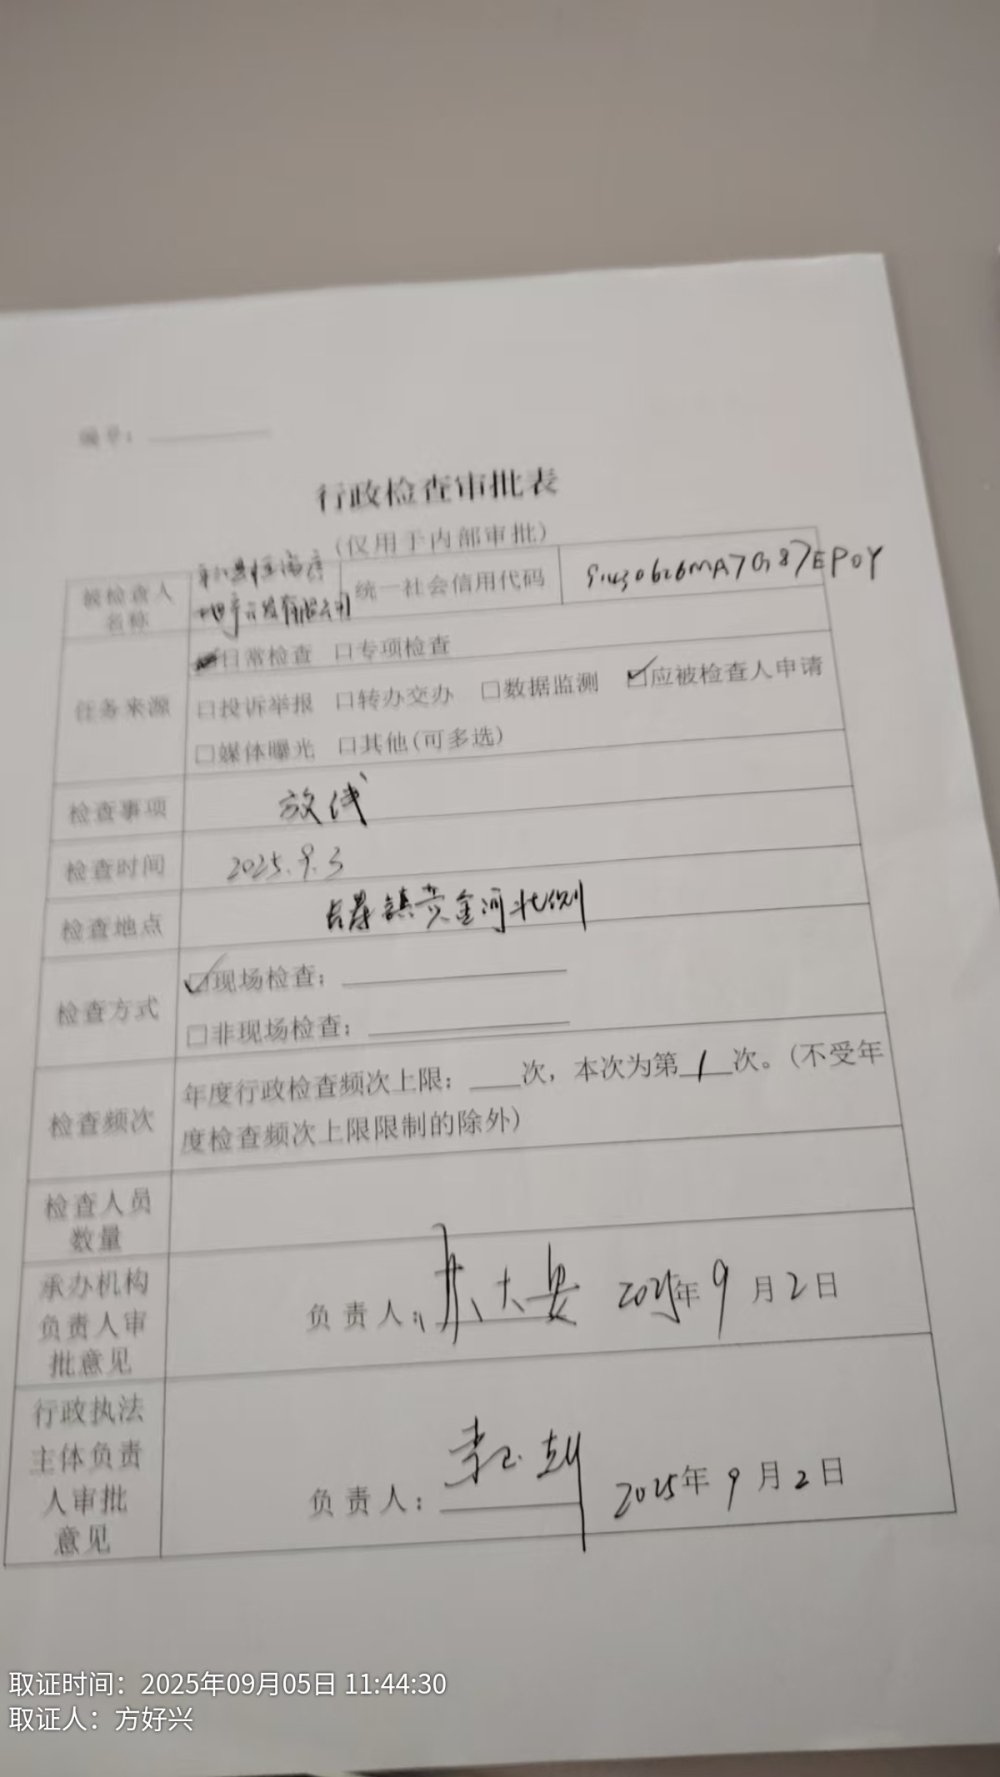 编号：
行政检查审批表
（仅用于内部审批）
被检查人名称
地产开发有限公司
统一社会信用代码 91430626MA7G87EP0Y
任务来源
日常检查 □专项检查
□投诉举报 □转办交办 □数据监测 ☑应被检查人申请
□媒体曝光 □其他(可多选)
检查事项 放线
检查时间 2025.9.3
检查地点 长寿镇黄金河北侧
检查方式
☑现场检查：
□非现场检查：
检查频次
年度行政检查频次上限：___次，本次为第 1 次。（不受年
度检查频次上限限制的除外）
检查人员
数量
承办机构
负责人审
批意见
负责人：苏大安 2025年9月2日
行政执法
主体负责
人审批
意见
负责人： 2025年9月2日
取证时间：2025年09月05日 11:44:30
取证人：方好兴